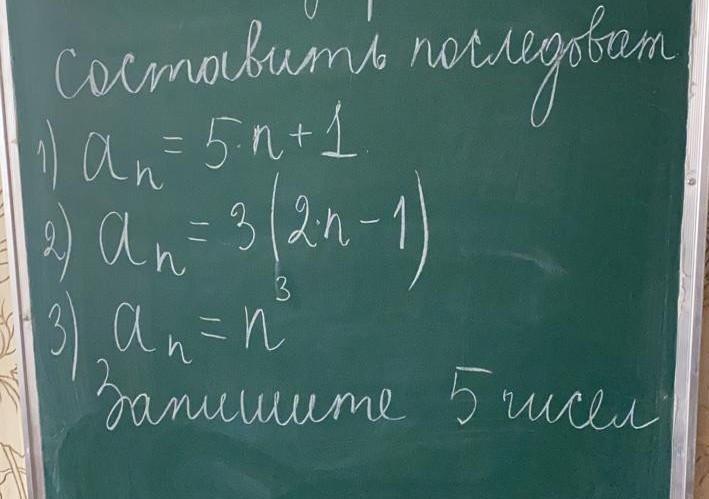 составить последоват
1) aₙ = 5·n+1
2) aₙ = 3(2·n-1)
3) aₙ = n³
Запишите 5 чисел